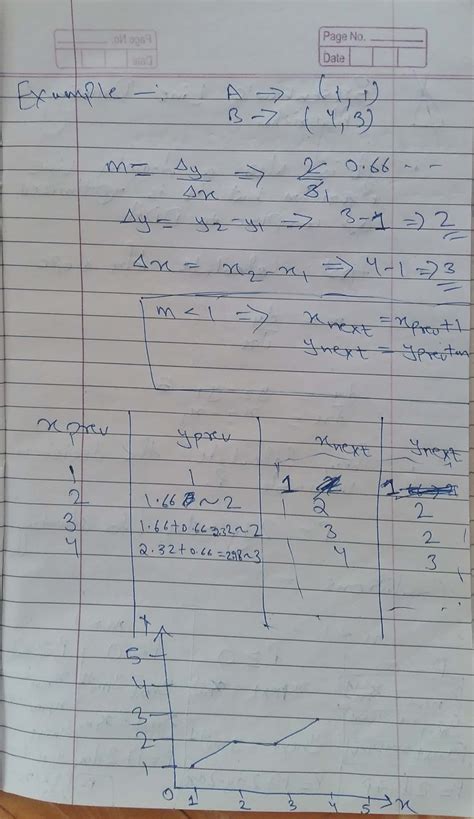 Page No.
Date
Example -: A -> (1, 1)
B -> (4, 3)
m = Δy/Δx => 2/3 0.66 --
Δy = y2 - y1 => 3-1 => 2
Δx = x2 - x1 => 4-1 => 3
m < 1 => xnext = xprev+1
ynext = yprev+m
xprev yprev xnext ynext
1 1 1 1
2 1.66 ~ 2 2 2
3 1.66+0.66=2.32~2 3 2
4 2.32+0.66=2.98~3 4 3
5
4
3
2
1
0 1 2 3 4 5 x